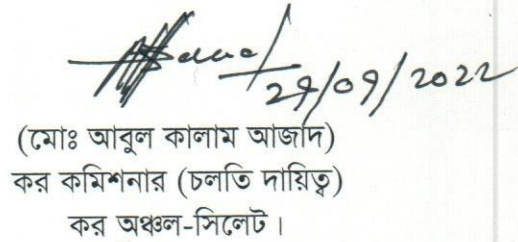 29/09/2022
(মোঃ আবুল কালাম আজাদ)
কর কমিশনার (চলতি দায়িত্ব)
কর অঞ্চল-সিলেট।